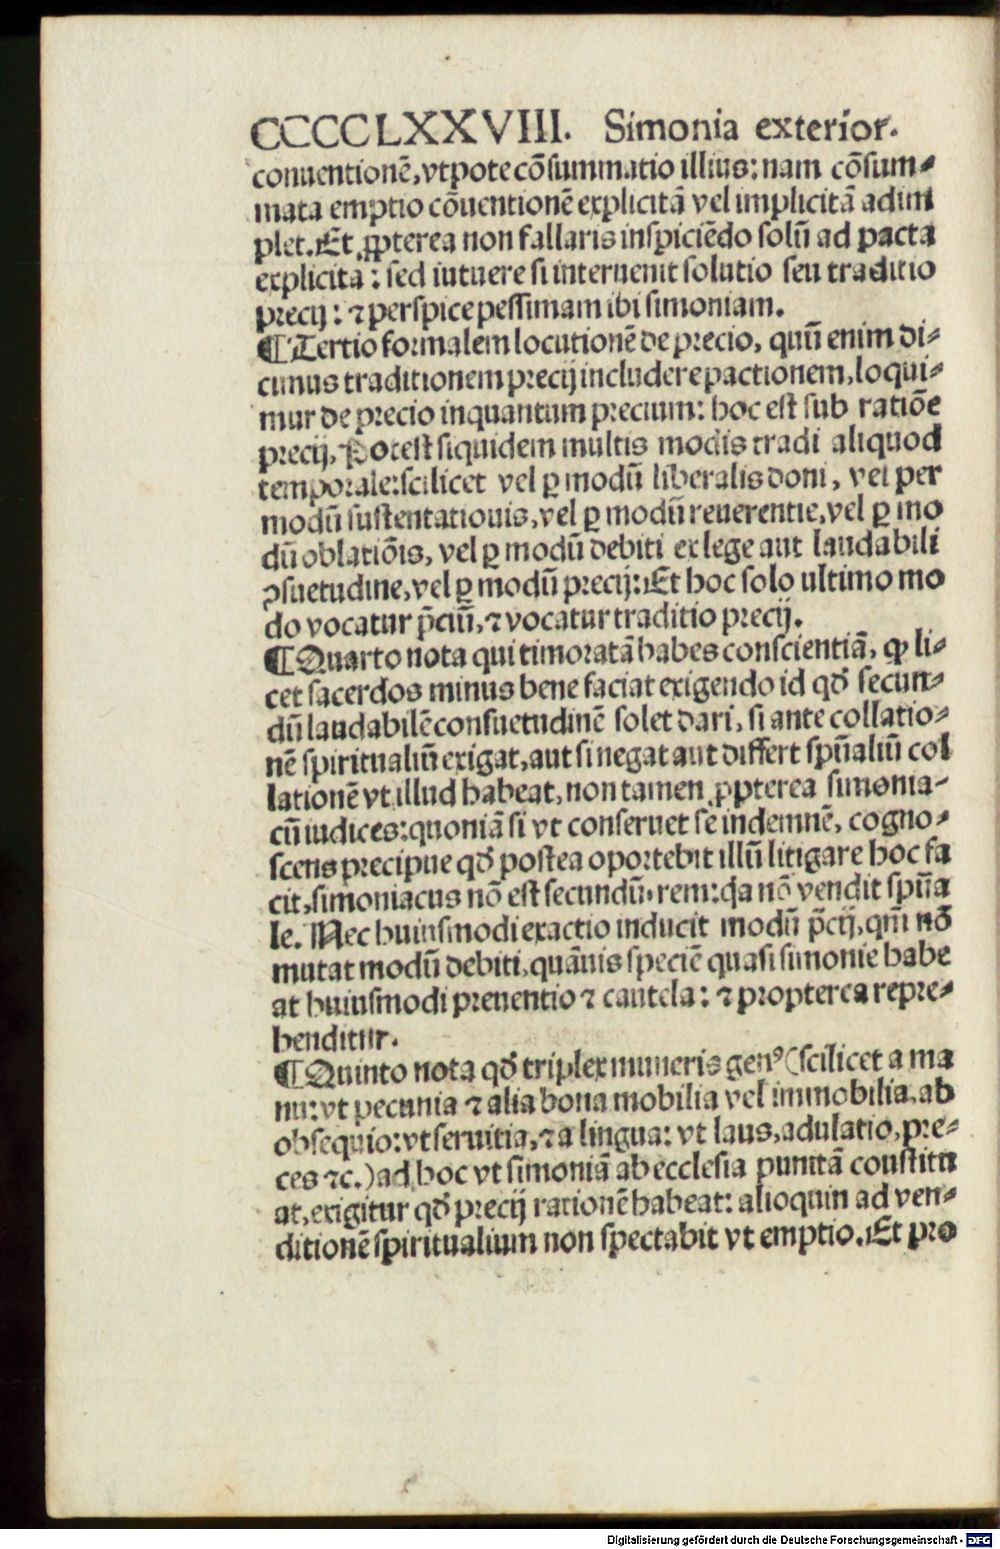 CCCCCLXXVIII. Simonia exterior.
conuentionē, vtpote cōsummatio illius: nam cōsum-
mata emptio cōuentionē explicitā vel implicitā adim
plet. Et ꝓpterea non fallaris inspiciēdo solū ad pacta
explicita: sed intuere si interuenit solutio seu traditio
precij: ⁊ perspice pessimam ibi simoniam.
¶ Tertio formalem locutionē de precio, quū enim di-
cimus traditionem precij includere pactionem, loqui-
mur de precio inquantum precium: hoc est sub ratiōe
precij, Potest siquidem multis modis tradi aliquod
temporale: scilicet vel ꝑ modū liberalis doni, vel per
modū sustentationis, vel ꝑ modū reuerentie, vel ꝑ mo
dū oblatiōis, vel ꝑ modū debiti ex lege aut laudabili
ꝯsuetudine, vel ꝑ modū precij: Et hoc solo ultimo mo
do vocatur p̄ciū, ⁊ vocatur traditio precij.
¶ Quarto nota qui timoratā habes conscientiā, ꝙ li-
cet sacerdos minus bene faciat exigendo id qđ secun-
dū laudabilē consuetudinē solet dari, si ante collatio-
nē spiritualiū exigat, aut si negat aut differt spūaliū col
lationē vt illud habeat, non tamen ꝓpterea simonia-
cū iudices: quoniā si vt conseruet se indemnē, cogno-
scens precipue qđ postea oportebit illū litigare hoc fa
cit, simoniacus nō est secundū rem: q̇a nō vendit spūa
le. Nec huiusmodi exactio inducit modū p̄cij, qm̄ nō
mutat modū debiti, quāuis speciē quasi simonie habe
at huiusmodi preuentio ⁊ cautela: ⁊ propterea repre-
henditur.
¶ Quinto nota qđ triplex muneris genꝰ (scilicet a ma
nu: vt pecunia ⁊ alia bona mobilia vel immobilia, ab
obsequio: vt seruitia, ⁊ a lingua: vt laus, adulatio, pre-
ces ⁊c.) ad hoc vt simoniā ab ecclesia punitā constitu
at, exigitur qđ precij rationē habeat: alioquin ad ven-
ditionē spiritualium non spectabit vt emptio. Et pro
Digitalisierung gefördert durch die Deutsche Forschungsgemeinschaft - DFG